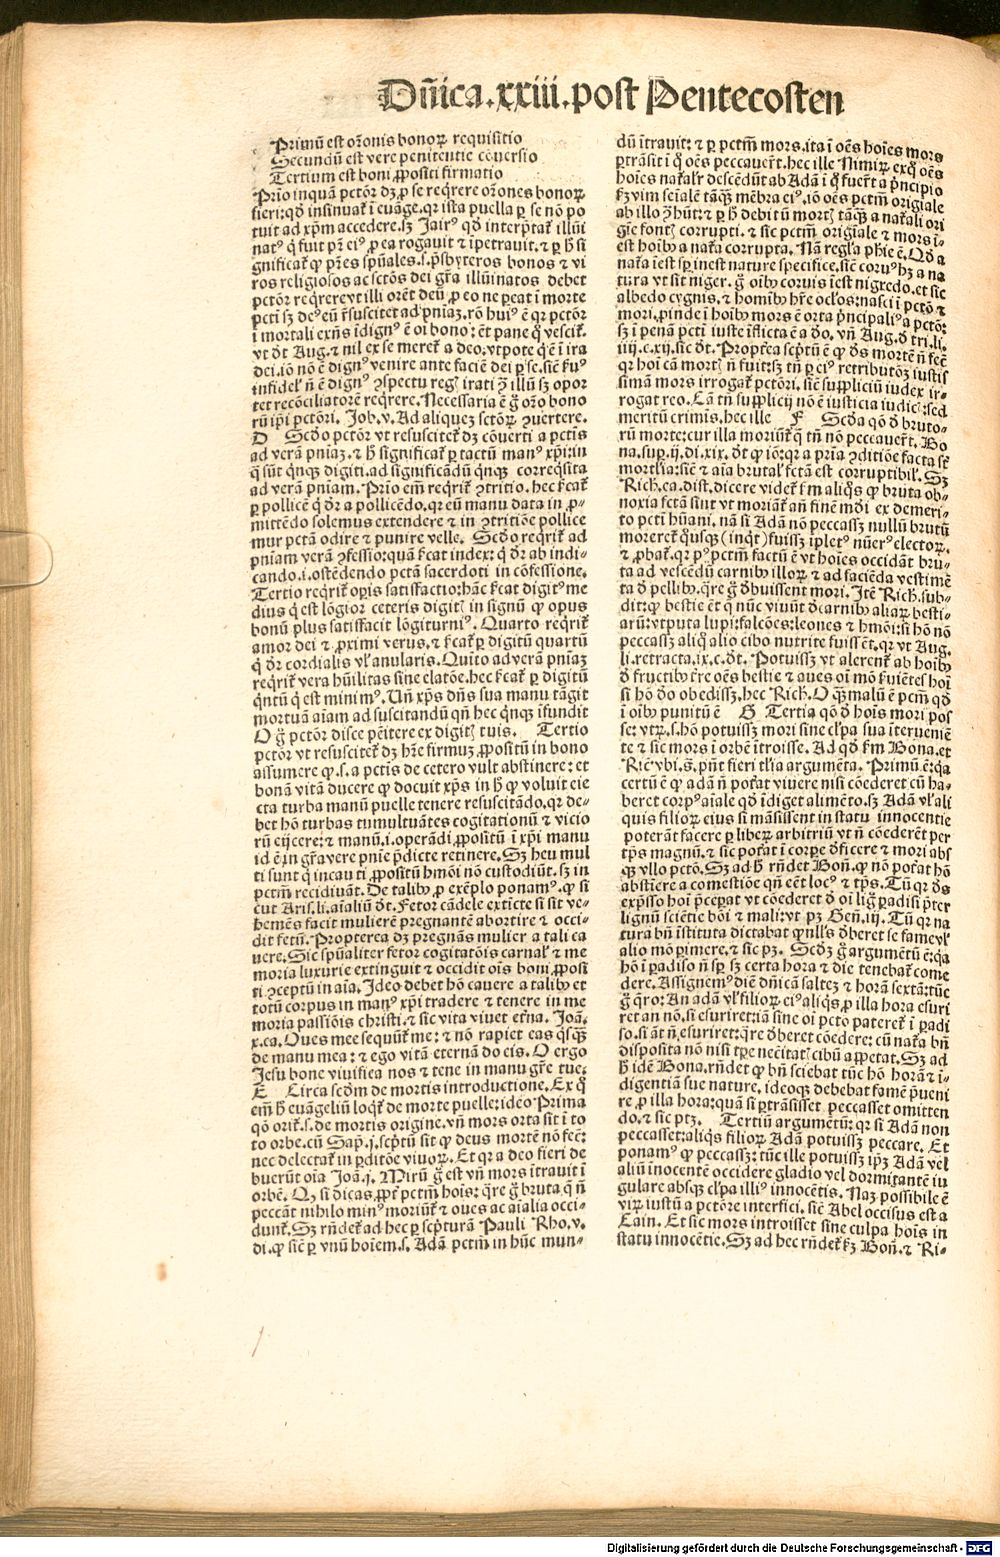 Dñica.xxiii.post Pentecosten
Primũ est or̃onis bonoꝝ requisitio
Secundũ est vere penitentie cõuersio
Tertium est boni ꝓpositi firmatio
Prĩo inquã petõr dꝫ ꝑ se reqrere or̃ones bonoꝝ
fieri:qđ insinuat̃ ĩ euãge.qꝛ ista puella ꝑ se nõ po
tuit ad xp̃m accedere.sꝫ Jairꝰ qđ interp̃tat̃ illũi
natꝰ q̇ fuit pr̃ eiꝰ ꝓ ea rogauit ⁊ ĩpetrauit.⁊ ꝑ h̃ si
gnificat̃ ꝙ pr̃es spũales.s.p̃sbyteros bonos ⁊ vi
ros religiosos ac sctõs dei gr̃a illũinatos debet
pctõr reqrere vt illi orẽt deũ ꝓ eo ne ꝑeat ĩ morte
pcti sꝫ deꝰ eũ r̃suscitet ad pniaꝫ.rõ huiꝰ ẽ qꝛ pctõr
ĩ mortali exñs ĩdignꝰ ẽ oĩ bono:ẽt pane q̃ vescit̃.
vt đt Aug.⁊ nil ex se meret̃ a deo:vtpote q̇ ẽ ĩ ira
dei.iõ nõ ẽ dignꝰ venire ante faciẽ dei ꝑ se.sic̃ ẽuꝰ
infidelꝭ ñ ẽ dignꝰ ꝯspectu regꝭ irati ꝫ illũ sꝫ opor
tet recõciliatorẽ reqrere.Necessaria ẽ g̃ or̃o bono
rũ ip̃i pctõri. Job.v. Ad aliqueꝫ sctõꝝ ꝯuertere.
D Scđo pctõr vt resuscitet̃ dꝫ cõuerti a pctis
ad verã pniaꝫ.⁊ h̃ significat̃ ꝑ tactũ manꝰ xp̃i:in
q̃ sũt q̃nqꝫ digiti.ad significãdũ q̃nqꝫ correqsita
ad verã pniam. Prĩo em̃ reqrit̃ ꝯtritio.hec ẽcat̃
ꝑ pollicẽ q̇ đr a pollicẽdo.qꝛ eũ manu data in ꝓ⸗
mittẽdo solemus extendere ⁊ in ꝯtritiõe pollice
mur pctã odire ⁊ punire velle. Scđo reqrit̃ ad
pniam verã ꝯfessio:quã ẽcat index: q̇ đr ab indi⸗
cando.i.ostẽdendo pctã sacerdoti in cõfessione.
Tertio reqrit̃ oꝑis satisfactio:hãc ẽcat digitꝰ me
dius q̇ est lõgior ceteris digitꝭ in signũ ꝙ opus
bonũ plus satisfacit lõgiturniꝰ. Quarto reqrit̃
amor dei ⁊ ꝓximi verus.⁊ ẽcat̃ ꝑ digitũ quartũ
q̇ đr cordialis vl̃ anularis. Quĩto ad verã pniaꝫ
reqrit̃ vera hũilitas sine elatõe.hec ẽcat̃ ꝑ digitũ
q̇ntũ q̇ est minimꝰ. Uñ xp̃s dñs sua manu tãgit
mortuã aĩam ad suscitandũ qñ hec q̇nqꝫ ĩfundit
O g̃ pctõr disce pẽitere ex digitꝭ tuis. Tertio
pctõr vt resuscitet̃ dꝫ hr̃e firmuꝫ ꝓpositũ in bono
assumere ꝙ.s.a pctis de cetero vult abstinere: et
bonã vitã ducere ꝙ docuit xp̃s in h̃ ꝙ voluit eie
cta turba manũ puelle tenere resuscitãdo.qꝛ de⸗
bet hõ turbas tumultuãtes cogitationũ ⁊ vicio
rũ eijcere:⁊ manũ.i.operãdi ꝓpositũ ĩ xp̃i manu
id ẽ in gr̃a vere pnie p̃dicte retinere. Sꝫ heu mul
ti sunt q̇ incauti ꝓpositũ hmõi nõ custodiũt.sꝫ in
pctm̃ recidiuãt. De talibꝰ ꝓ exẽplo ponamꝰ.ꝙ si
cut Aris.li.aĩaliũ đt. Fetor cãdele exticte si sit ve⸗
hemẽs facit mulierẽ pregnantẽ abortire ⁊ occi⸗
dit fetũ. Propterea dꝫ pregnãs mulier a tali ca
uere. Sic spũaliter fetor cogitatõis carnalꝭ ⁊ me
moria luxurie extinguit ⁊ occidit oĩs boni ꝓposi
ti ꝯceptũ in aĩa. Jdeo debet hõ cauere a talibꝰ et
totũ corpus in manꝰ xp̃i tradere ⁊ tenere in me
moria passiõis christi.⁊ sic vita viuet et̃na. Joã.
x.ca. Oues mee sequũt̃ me: ⁊ nõ rapiet eas q̇sqꝫ
de manu mea: ⁊ ego vitã eternã do eis. O ergo
Jesu bone viuifica nos ⁊ tene in manu gr̃e tue.
E Circa scđm de mortis introductione. Ex q̃
em̃ h̃ euãgeliũ loqt̃ de morte puelle:ideo Prima
qõ orit̃.s.de mortis origine.vñ mors orta sit ĩ to
to orbe.cũ Sap.j.scp̃tũ sit ꝙ deus mortẽ nõ fec̃:
nec delectat̃ in ꝑditõe viuoꝝ. Et qꝛ a deo fieri de
buerũt oĩa Joã.j. Mirũ g̃ est vñ mors ĩtrauit ĩ
orbẽ. Qꝫ si dicas.ꝓt̃ pctm̃ hoĩs: q̃re g̃ bruta q̇ ñ
peccãt nihilo minꝰ moriũt̃ ⁊ oues ac aĩalia occi⸗
dunt̃. Sꝫ rñdet̃ ad hec ꝑ scp̃turã Pauli Rho.v.
di.ꝙ sic̃ ꝑ vnũ hoĩem.s. Adã pctm̃ in hũc mun⸗
dũ ĩtrauit: ⁊ ꝑ pctm̃ mors.ita ĩ oẽs hoĩes mors
ꝑtrãsit ĩ q̃ oẽs peccauer̃t.hec ille Nimiꝝ ex q̃ oẽs
hoĩes nat̃alr̃ descẽdũt ab Adã ĩ q̃ fuer̃t a p̃ncipio
ẽꝫ vim seĩalẽ tãqꝫ mẽbra eiꝰ.iõ oẽs pctm̃ origiale
ab illo ꝯ̃hũt:⁊ ꝑ h̃ debitũ mortꝭ tãqꝫ a nat̃ali ori
gie fontꝭ corrupti.⁊ sic pctm̃ origiale ⁊ mors ĩ⸗
est hoĩbꝰ a nat̃a corrupta. Nã regl̃a phie ẽ. Qđ a
nat̃a ĩest sꝑ inest nature specifice.sic̃ coruꝰ hꝫ a na
tura vt sit niger. g̃ oĩbꝰ coruis ĩest nigredo.et sic
albedo cygnis.⁊ homĩbꝰ hr̃e oc̃los:nasci ĩ pctõ ⁊
mori.ꝓinde ĩ hoĩbꝰ mors ẽ orta p̃ncipalꝰ a pctõ:
sꝫ ĩ penã pcti iuste ĩflicta ẽ a đo. vñ Aug.đ tri.li.
iiij.c.xij.sic đt. Propt̃ea scp̃tũ ẽ ꝙ đs mortẽ ñ fec̃
qꝛ hoĩ cã mortꝭ ñ fuit:sꝫ tñ ꝑ eiꝰ retributõꝫ iustis
simã mors irrogat̃ pctõri. sic̃ suppliciũ iudex ir⸗
rogat reo. Cã tñ supplicij nõ ẽ iusticia iudicꝭ:sed
meritũ crimis.hec ille F Scđa qõ đ bruto⸗
rũ morte:cur illa moriũt̃ q̇ tñ nõ peccauer̃t. Bo
na.suꝑ.ij.di.xix.đt ꝙ iõ:qꝛ a prĩa ꝯditiõe facta st̃
mortl̃ia:sic̃ ⁊ aĩa brutalꝭ fctã est corruptibilꝭ. Sꝫ
Rich.ea.dist.dicere videt̃ ẽm aliq̇s ꝙ bruta ob⸗
noxia fctã sũt vt moriãt̃ añ finẽ mũdi ex demeri⸗
to pcti hũani. nã si Adã nõ peccassꝫ nullũ brutũ
moreret̃ q̇usqꝫ (inqt) fuissꝫ ĩpletꝰ nũerꝰ electoꝝ.
⁊ ꝓbat̃.qꝛ ꝑꝰ pctm̃ factũ ẽ vt hoĩes occidãt bru⸗
ta ad vescẽdũ carnibꝰ illoꝝ ⁊ ad faciẽda vestimẽ
ta đ pellibꝰ.q̃re g̃ đbuissent mori. Jtẽ Rich.sub⸗
dit:ꝙ bestie ẽt q̇ nũc viuũt đ carnibꝰ aliaꝝ besti⸗
arũ:vtputa lupi:falcões:leones ⁊ hmõi:si hõ nõ
peccassꝫ aliq̃ alio cibo nutrite fuissẽt.qꝛ vt Aug.
li.retracta.ix.c.đt. Potuissꝫ vt alerent̃ ab hoĩbꝰ
đ fructibꝰ tr̃e oẽs bestie ⁊ aues oĩ mõ ẽuiẽtes hoĩ
si hõ đo obedissꝫ.hec Rich. O qꝫ malũ ẽ pctm̃ qđ
ĩ oĩbꝰ punitũ ẽ G Tertia qõ đ hoĩs mori pos
se: vtꝝ.s.hõ potuissꝫ mori sine cl̃pa sua ĩterueniẽ
te ⁊ sic mors ĩ orbẽ ĩtroisse. Ad qđ ẽm Bona.et
Ric̃ vbi.s̃. pñt fieri tl̃ia argumẽta. Primũ ẽ:q̃a
certũ ẽ ꝙ adã ñ pot̃at viuere nisi cõederet cũ ha⸗
beret corpꝰ aĩale qđ ĩdiget alimẽto.sꝫ Adã vl̃ ali
quis filioꝝ eius si mãsissent in statu innocentie
poterãt facere ꝑ liberꝝ arbitriũ vt ñ cõederẽt per
tp̃s magnũ.⁊ sic pot̃at ĩ corꝑe đficere ⁊ mori abs
qꝫ vllo pctõ. Sꝫ ad h̃ rñdet Boñ.ꝙ nõ pot̃at hõ
abstĩere a comestiõe qñ eẽt locꝰ ⁊ tp̃s. Tũ qꝛ đs
exp̃sso hoĩ p̃ceꝑat vt cõederet đ oĩ lig̃ ꝑadisi p̃ter
lignũ sciẽtie bõi ⁊ mali:vt pꝫ Geñ.iij. Tũ qꝛ na
tura bñ ĩstituta dictabat ꝙ nllꝰs đberet se fame vl̃
alio mõ ꝑimere.⁊ sic pꝫ. Scđꝫ g̃ argumẽtũ ẽ:q̃a
hõ ĩ ꝑadiso ñ sꝑ sꝫ certa hora ⁊ die tenebat̃ come
dere. Assignemꝰ diẽ dñicã salteꝫ ⁊ horã sextã:tũc
g̃ q̃ro: An adã vl̃ filioꝝ eiꝰ aliq̇s ꝓ illa hora esuri
ret an nõ.si esuriret:iã sine oĩ pctõ pateret̃ ĩ ꝑadi
so.si aũt ñ esuriret:q̃re đberet cõedere: cũ nat̃a bñ
disposita nõ nisi tꝑe necẽitatꝭ cibũ appetat. Sꝫ ad
h̃ idẽ Bona.rñdet ꝙ bñ sciebat tũc hõ horã ⁊ ĩ⸗
digentiã sue nature. ideoqꝫ debebat famẽ p̃ueni
re ꝓ illa hora:quã si ꝑtrãsisset peccasset omitten
do.⁊ sic ptꝫ. Tertiũ argumẽtũ: qꝛ si Adã non
peccasset:aliq̇s filioꝝ Adã potuissꝫ peccare. Et
ponamꝰ ꝙ peccassꝫ: tũc ille potuissꝫ ip̃ꝫ Adã vel
aliũ inocentẽ occidere gladio vel dormitantẽ iu
gulare absqꝫ cl̃pa illiꝰ innocẽtis. Naꝫ possibile ẽ
viꝝ iustũ a pctõre interfici.sic̃ Abel occisus est a
Cain. Et sic mors introisset sine culpa hoĩs in
statu innocẽtie. Sꝫ ad hec rñdet̃ ẽꝫ Boñ.⁊ Ri⸗
Digitalisierung gefördert durch die Deutsche Forschungsgemeinschaft - DFG